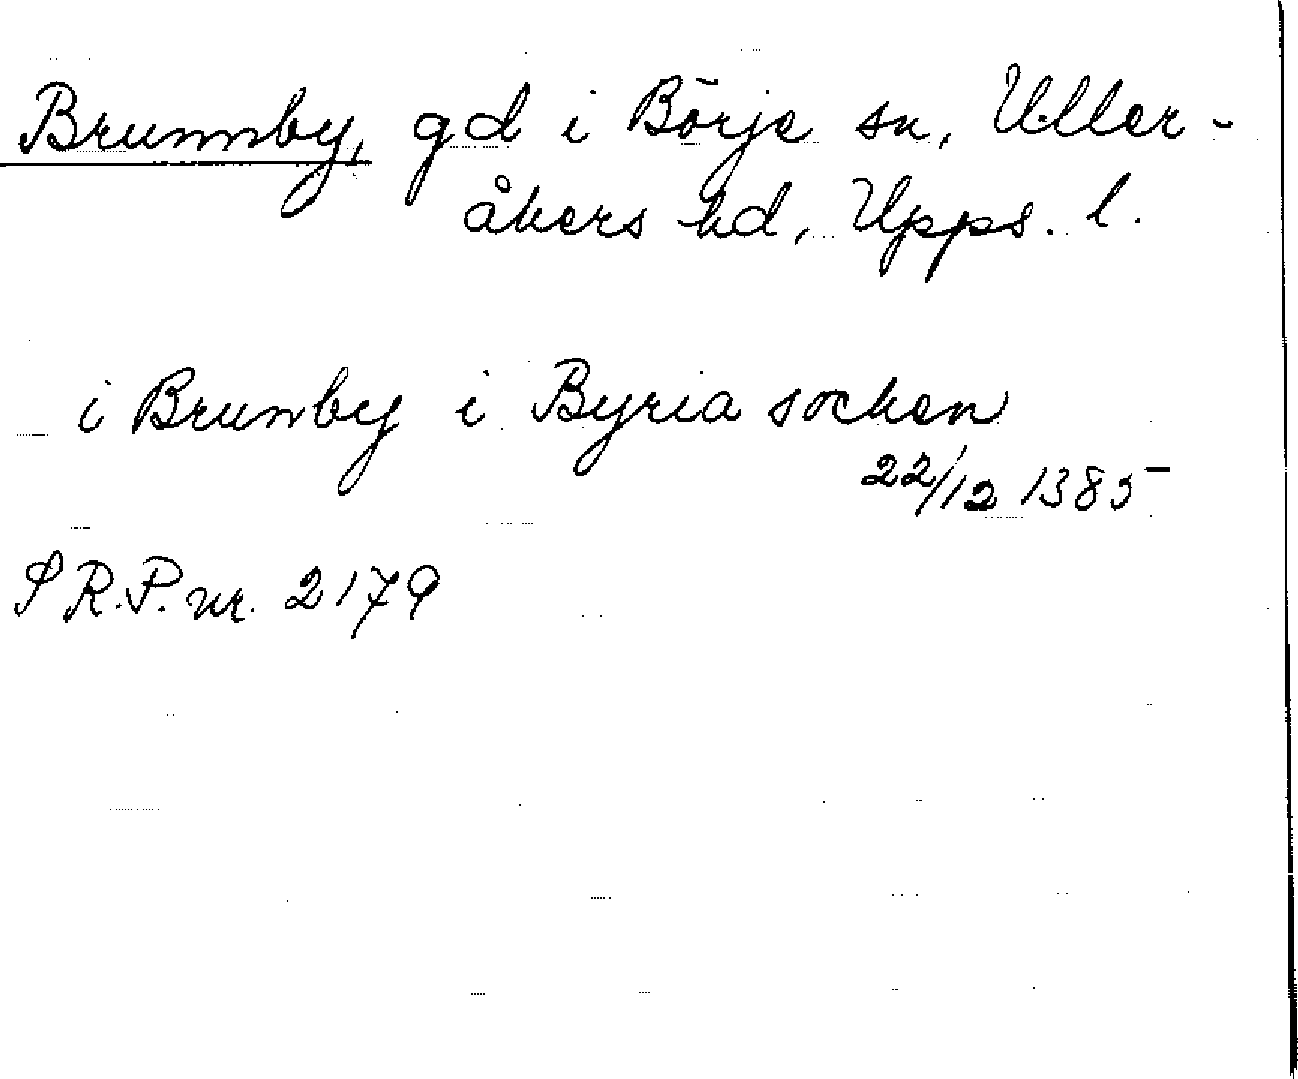 Brunnby, gd i Börje sn, Uller-
åkers hd, Upps. l.
i Brunby i Byria socken
22/12 1385
S R.P. nr. 2179